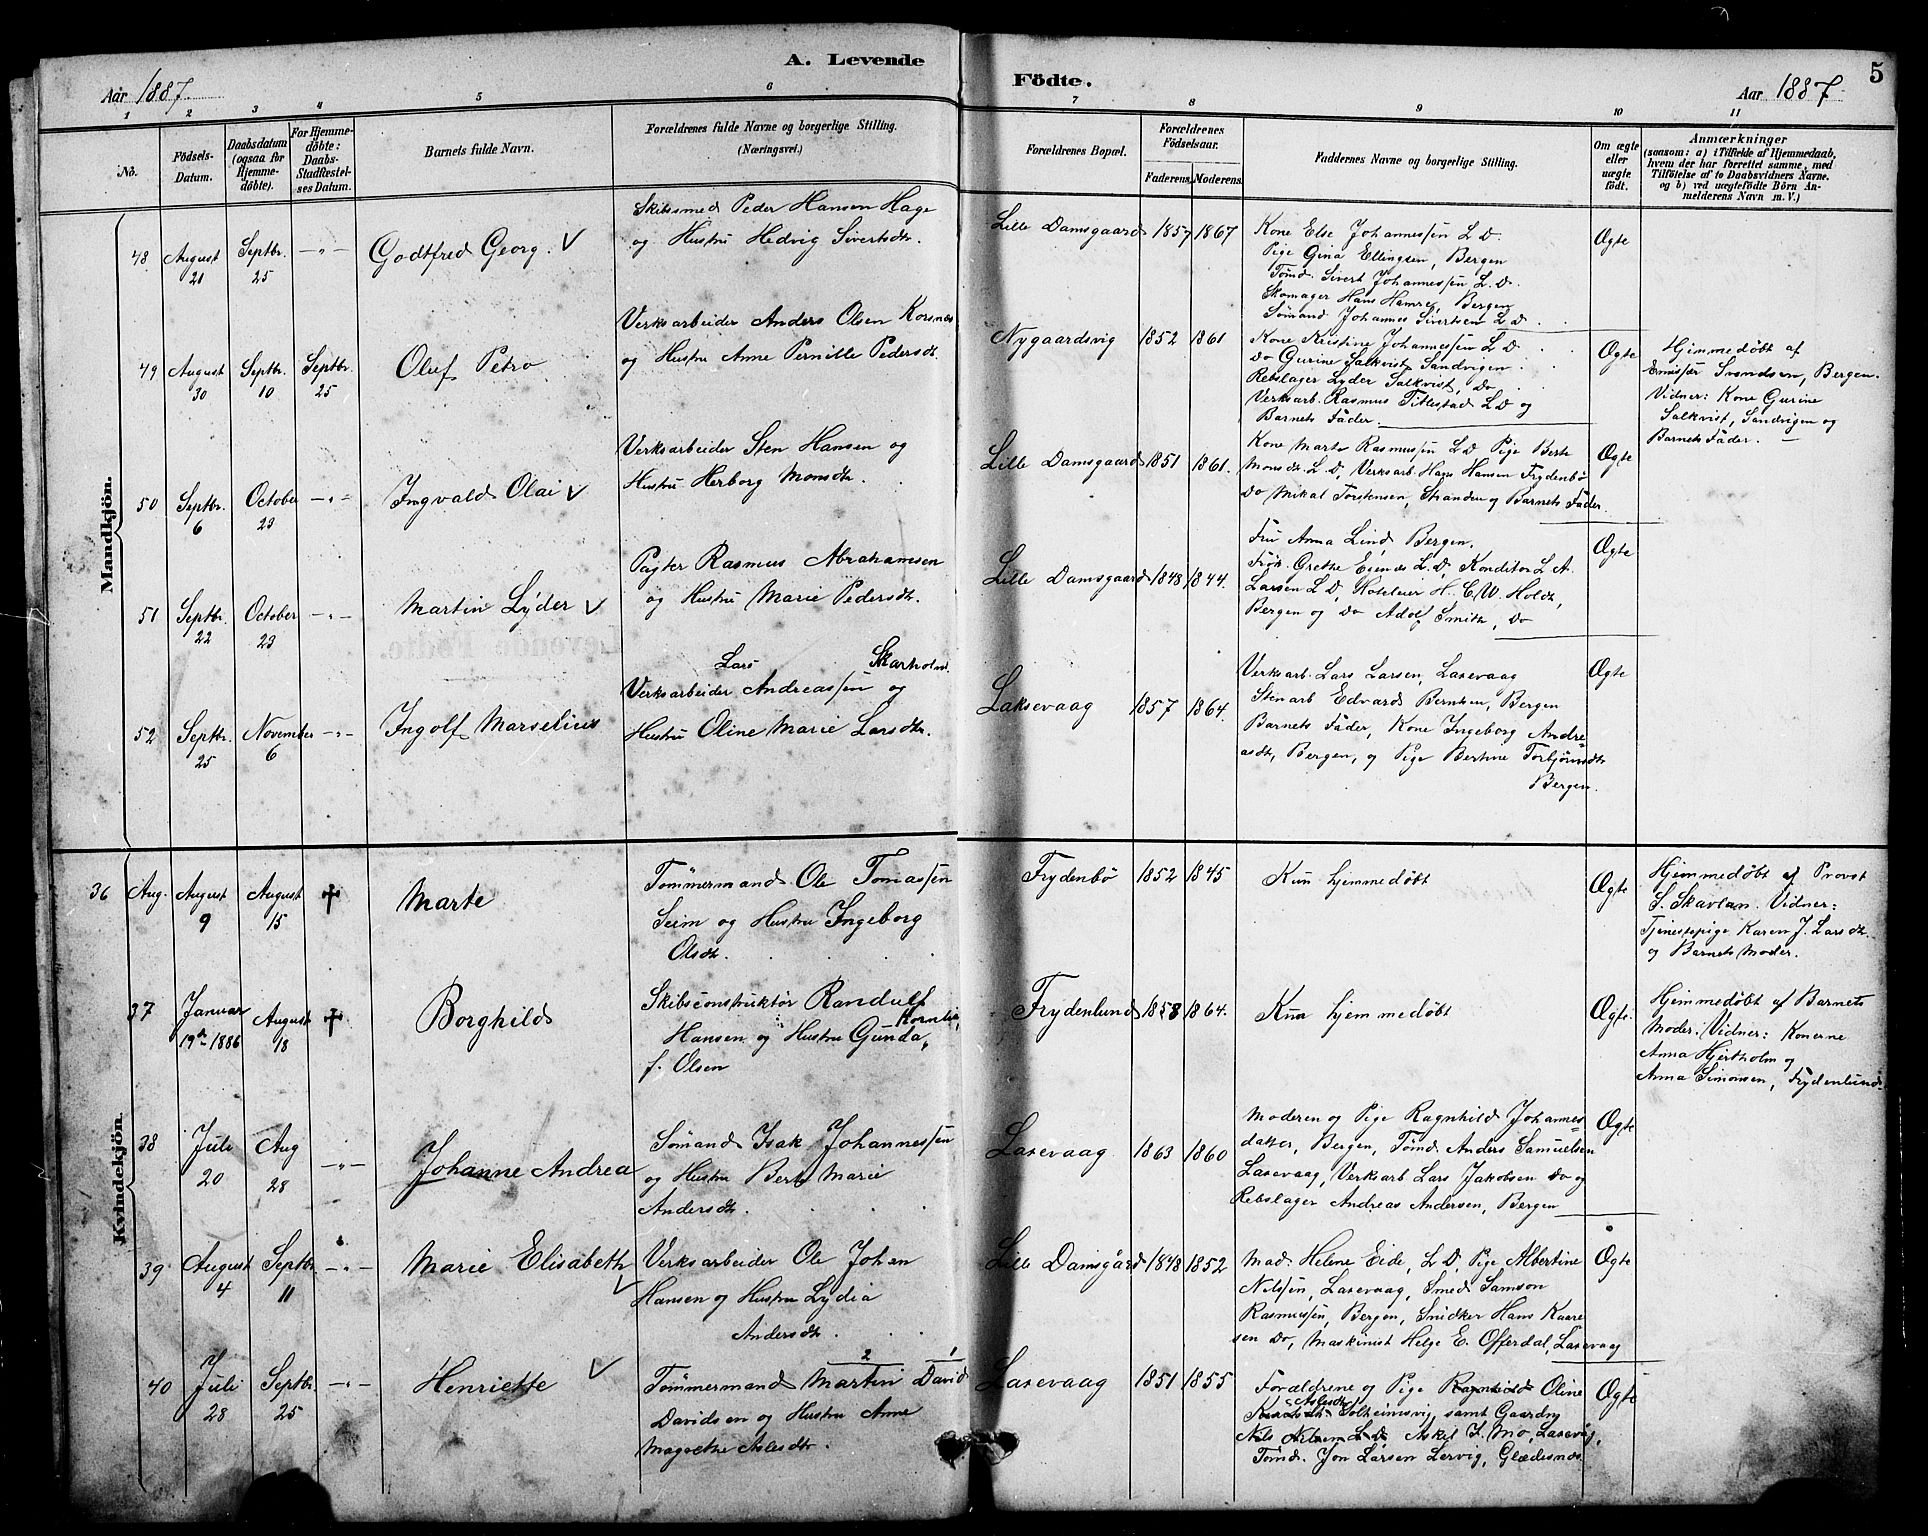 A. Levende Födte.
5
Aar 1887.
Aar 1887
1 2 3 4 5 6 7 8 9 10 11
No.
Födsels-
Datum.
Daabsdatum
(ogsaa for
Hjemme-
döbte).
For Hjemme-
döbte:
Daabs-
Stadfæstel-
ses Datum.
Barnets fulde Navn.
Forældrenes fulde Navne og borgerlige Stilling.
(Næringsvei.)
Forældrenes Bopæl.
Forældrenes
Födselsaar.
Faderens. Moderens.
Faddernes Navne og borgerlige Stilling.
Om ægte
eller
uægte
födt.
Anmærkninger
(saasom: a) i Tilfælde af Hjemmedaab,
hvem der har forrettet samme, med
Tilföielse af to Daabsvidners Navne,
og b) ved uægtefödte Börn An-
melderens Navn m. V.)
Mandkjön.
48.
August
21
Septbr.
25
-„-
Godtfred Georg. V
Skibssmed Peder Hansen Hage
og Hustru Hedvig Sivertsdtr.
Lille Damsgaard
1857
1867
Kone Else Johannessen L D.
Pige Gina Ellingsen, Bergen
Tømd. Sivert Johannessen L. D.
Skomager Hans Hamre, Bergen
Sömand Johannes Sivertsen L D.
Ægte
49
August
30
Septbr.
10
Septbr.
25
Oluf Petro
Verksarbeider Anders Olsen Korsnes
og Hustru Anne Pernille Pedersdt.
Nygaardsvig
1852
1861
Kone Kristine Johannessen L D
Do Gurine Salkvist Sandvigen
Rebslager Lyder Salkvist, Do
Verksarb. Rasmus Titlestad L D og
Barnets Fader.
Ægte
Hjemmedøbt af
Emissær Svendsen, Bergen.
Vidner: Kone Gurine
Salkvist, Sandvigen og
Barnets Fader. —
50
Septbr.
6
October
23
-„-
Ingvald Olai V
Verksarbeider Sten Hansen og
Hustru Herborg Monsdtr.
Lille Damsgaard
1851
1861.
Kone Marte Rasmussen L D Pige Berte
Monsdt. L D, Verksarb. Hans Hansen Frydenbø
Do Mikal Torstensen, Stranden og Barnets Fader
Ægte
51
Septbr.
22
October
23
-„-
Martin Lyder V
Pagter Rasmus Abrahamsen
og Hustru Marie Pedersdt.
Lille Damsgaard
1848
1844.
Fru Anna Lind Bergen.
Frøk. Grethe Eines L D, Konditor L A.
Larsen L D, Hoteleier H. C. W. Holdt,
Bergen og Do Adolf Smith, Do
Ægte
52
Septbr.
25
November
6
-„-
Ingolf Marselius
Lars Skarholm.
Verksarbeider Andreassen og
Hustru Oline Marie Larsdtr.
Laksevaag
1857
1864.
Verksarb. Lars Larsen, Laxevaag
Stenarb Edvard Berntsen, Bergen
Barnets Fader, Kone Ingeborg Andre=
asdt, Bergen, og Pige Bertine Torbjörnsdt
Bergen.
Ægte
Kvindekjön.
36
Aug.
August
9
August
15
†
Marte
Tømmermand Ole Tomassen
Seim og Hustru Ingeborg
Olsdt.
Frydenbø
1852
1845
Kun hjemmedøbt
Ægte
Hjemmedøbt af Provst
S. Skavlan. Vidner:
Tjenestepige Karen J. Larsdt.
og Barnets Moder.
37
Januar
19de 1886
August
18
†
Borghild
Skibsconstruktør Randulf
Kornelia,
Hansen og Hustru Gunda
f. Olsen
Frydenlund
1858
1864.
Kun hjemmedøbt
Ægte.
Hjemmedøbt af Barnets
Moder. Vidner: Konerne
Anna Hjertholm og
Anna Simonsen, Frydenlund.
38
Juli
20
Aug
28
-„-
Johanne Andrea
Sømand Isak Johannessen
og Hustru Berte Marie
Andersdt.
Laxevaag
1863
1860
Moderen og Pige Ragnhild Johannes=
datter, Bergen, Tømd. Anders Samuelsen
Laxevaag, Verksarb Lars Jakobsen Do og
Rebslager Andreas Andersen, Bergen
Ægte
39
August
4
Septbr.
11
-„-
Marie Elisabeth V
Verksarbeider Ole Johan
Hansen og Hustru Lydia
Andersdt.
Lille Damsgård
1848
1852
Mad. Helene Eide, L D, Pige Albertine
Nilssen, Laxevaag, Smed Samson
Rasmussen, Bergen, Snidker Hans Kaare
sen Do, Maskinist Helge E. Offerdal, Laxevaag
Ægte
40
Juli
28
Septbr.
25
-„-
Henriette V
2 1
Tømmermand Martin David
Davidsen og Hustru Anne
Magrethe Aslesdtr.
Laxevaag
1851
1855
Forældrene og Pige Ragnhild Oline
Aslesdtr
Solheimsvig samt Gaardm
Nils Nilsen L D Askel J. Mo, Laxevåg,
Tømd. Jon Larsen Lervig, Glædesnæs.
Ægte